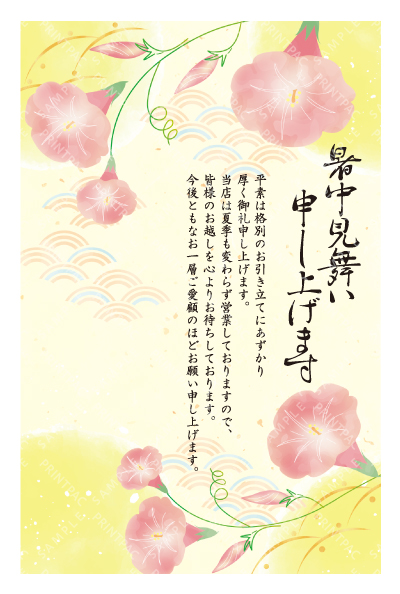 暑中見舞い
申し上げます
平素は格別のお引き立てにあずかり
厚く御礼申し上げます。
当店は夏季も変わらず営業しておりますので、
皆様のお越しを心よりお待ちしております。
今後ともなお一層ご愛顧のほどお願い申し上げます。